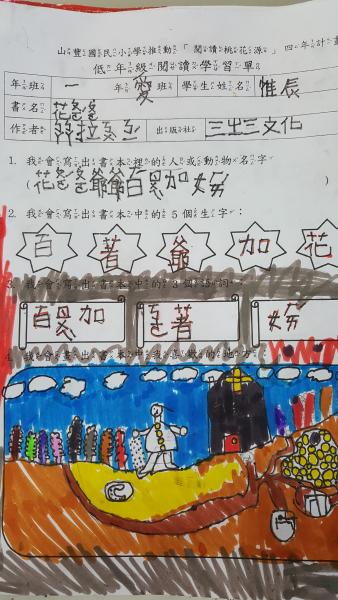 山豐國民小學推動「閱讀桃花源」四年計畫
低年級閱讀學習單
年班 一 年 愛 班 學生姓名 惟辰
書名 花爸爸
作者 出版社 三之三文化
1. 我會寫出書本裡的人或動物名字
(花爸爸爺爺百恩加 )
2. 我會寫出書本中的5個生字：
百 著 爺 加 花
3. 我會寫出書本中的3個語詞：
百恩加 著
4. 我會畫出書本中我喜歡的地方：